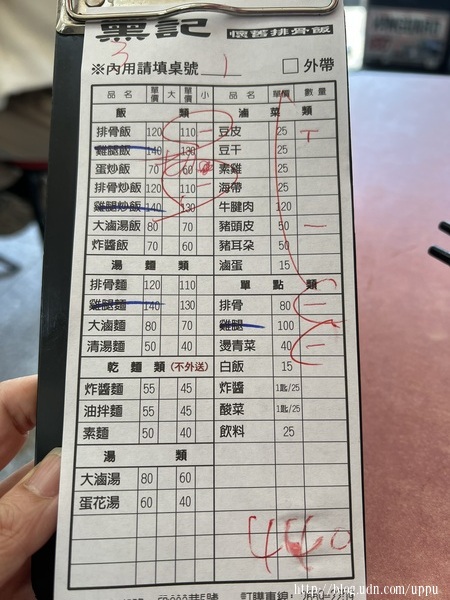 黨記 懷舊排骨飯
3
※內用請填桌號 1 □ 外帶
品名 單價 大 單價 小 品名 單價 數量
飯類 滷菜類
排骨飯 120 110 一 豆皮 25 T
雞腿飯 140 130 豆干 25
蛋炒飯 70 60 素雞 25
排骨炒飯 120 110 一 海帶 25
雞腿炒飯 140 130 牛腱肉 120
大滷湯飯 80 70 豬頭皮 50 一
炸醬飯 70 60 豬耳朵 50
湯麵類 滷蛋 15
排骨麵 120 110 單點類
雞腿麵 140 130 排骨 80 一
大滷麵 80 70 雞腿 100
清湯麵 50 40 燙青菜 40 一
乾麵類(不外送) 白飯 15
炸醬麵 55 45 炸醬 1匙/25
油拌麵 55 45 酸菜 1匙/25
素麵 50 40 飲料 25
湯類
大滷湯 80 60
蛋花湯 60 40
440
http://blog.udn.com/uppu